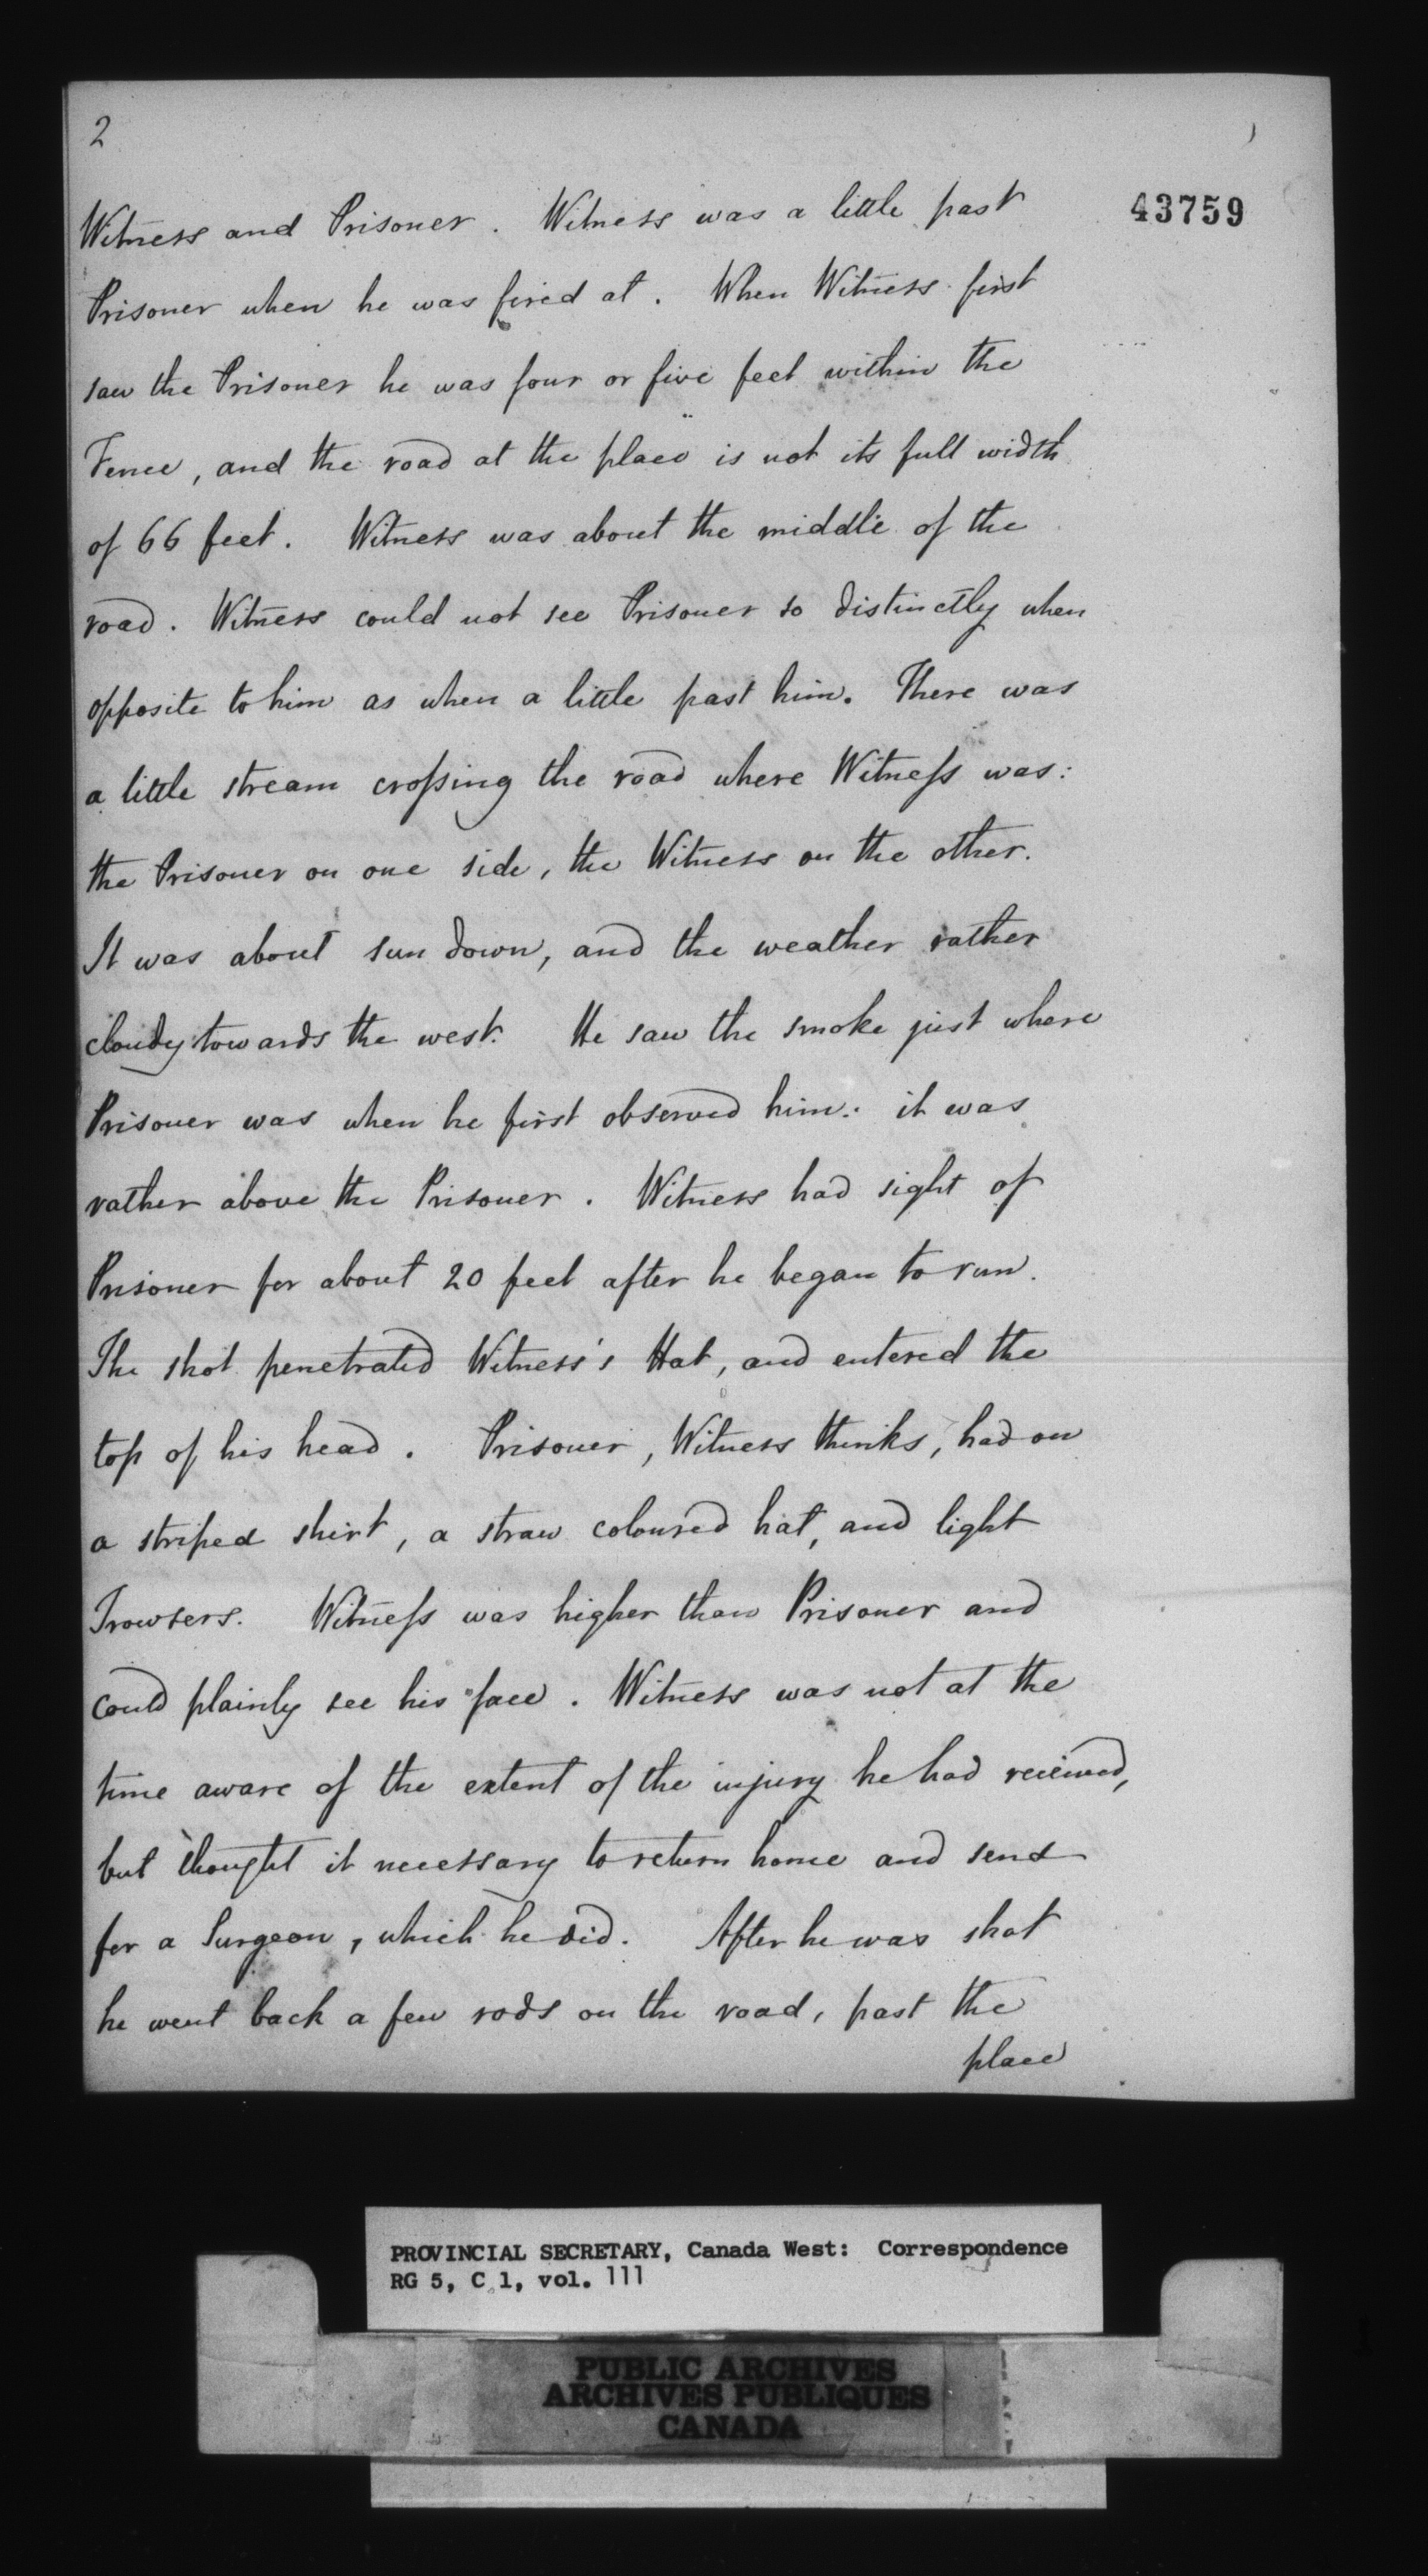 2
43759
Witness and Prisoner. Witness was a little past
Prisoner when he was fired at. When Witness first
saw the Prisoner he was four or five feet within the
Fence, and the road at the place is not its full width
of 66 feet. Witness was about the middle of the
road. Witness could not see Prisoner so distinctly when
opposite to him as when a little past him. There was
a little stream crossing the road where Witness was:
the Prisoner on one side, the Witness on the other.
It was about sun down, and the weather rather
cloudy towards the west. He saw the smoke just where
Prisoner was when he first observed him: it was
rather above the Prisoner. Witness had sight of
Prisoner for about 20 feet after he began to run.
The shot penetrated Witness's Hat, and entered the
top of his head. Prisoner, Witness thinks, had on
a striped shirt, a straw coloured hat, and light
Trowsers. Witness was higher than Prisoner and
could plainly see his face. Witness was not at the
time aware of the extent of the injury he had received,
but thought it necessary to return home and send
for a Surgeon, which he did. After he was shot
he went back a few rods on the road, past the
place
PROVINCIAL SECRETARY, Canada West: Correspondence
RG 5, C 1, vol. 111
PUBLIC ARCHIVES
ARCHIVES PUBLIQUES
CANADA